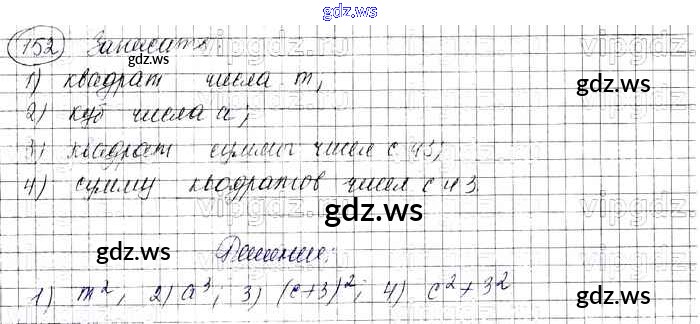 gdz.ws
152 Записать
1) квадрат числа m;
gdz.ws
2) куб числа a;
3) квадрат суммы чисел с и 3;
gdz.ws
4) сумму квадратов чисел с и 3.
gdz.ws
gdz.ws
Решение:
1) m², 2) a³; 3) (c+3)²; 4) c²+3²
gdz.ws